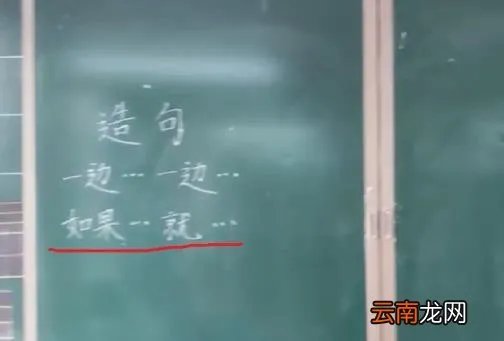 造句
一边…一边…
如果…就…
云南龙网